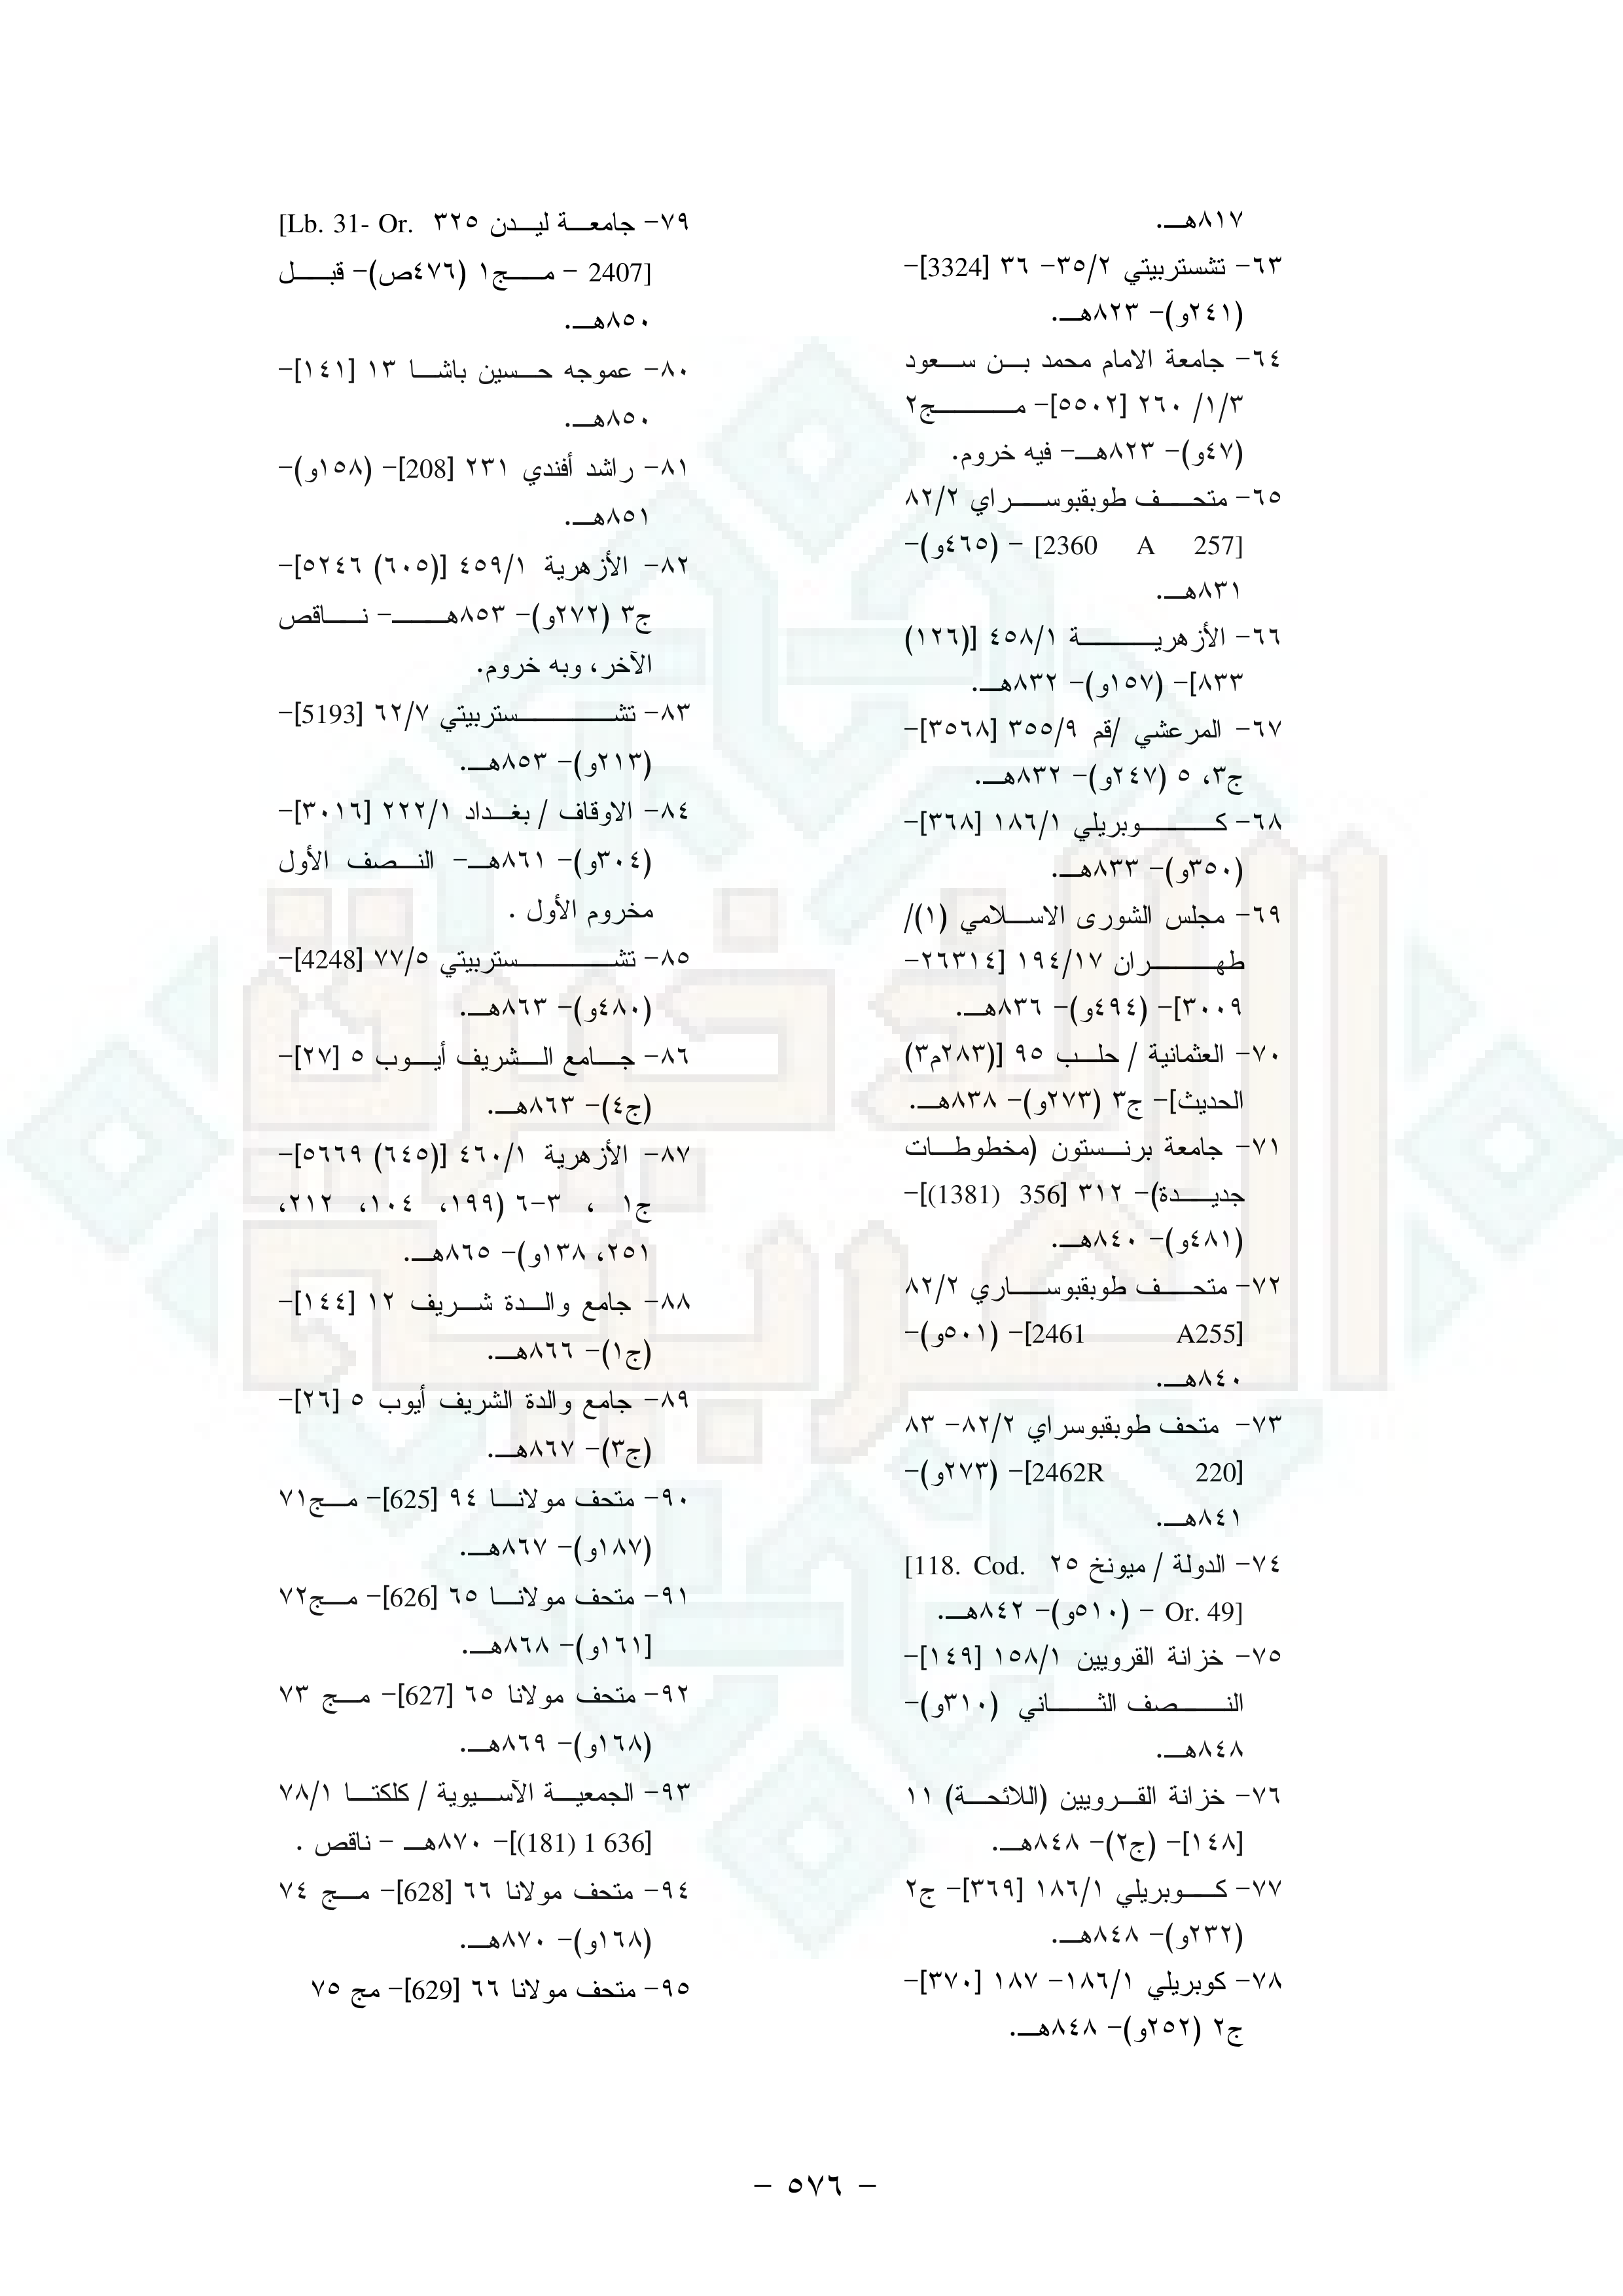 ٨١٧هـ.
٦٣- تشستربيتي ٣٥/٢- ٣٦ [3324]-
(٢٤١و)- ٨٢٣هـ.
٦٤- جامعة الامام محمد بن سعود
٣/١/ ٢٦٠ [٥٥٠٢]- مج٢
(٤٧و)- ٨٢٣هـ- فيه خروم.
٦٥- متحف طوبقبوسراي ٨٢/٢
[2360 A 257] - (٤٦٥و)-
٨٣١هـ.
٦٦- الأزهرية ٤٥٨/١ [(١٢٦)
٨٣٣]- (١٥٧و)- ٨٣٢هـ.
٦٧- المرعشي /قم ٣٥٥/٩ [٣٥٦٨]-
ج٣، ٥ (٢٤٧و)- ٨٣٢هـ.
٦٨- كوبريلي ١٨٦/١ [٣٦٨]-
(٣٥٠و)- ٨٣٣هـ.
٦٩- مجلس الشورى الاسلامي (١)/
طهران ١٩٤/١٧ [٢٦٣١٤-
٣٠٠٩]- (٤٩٤و)- ٨٣٦هـ.
٧٠- العثمانية / حلب ٩٥ [(٢٨٣م٣)
الحديث]- ج٣ (٢٧٣و)- ٨٣٨هـ.
٧١- جامعة برنستون (مخطوطات
جديدة)- ٣١٢ [356 (1381)]-
(٤٨١و)- ٨٤٠هـ.
٧٢- متحف طوبقبوساري ٨٢/٢
[2461 A255]- (٥٠١و)-
٨٤٠هـ.
٧٣- متحف طوبقبوسراي ٨٢/٢- ٨٣
[2462R 220]- (٢٧٣و)-
٨٤١هـ.
٧٤- الدولة / ميونخ ٢٥ [118. Cod.
Or. 49] - (٥١٠و)- ٨٤٢هـ.
٧٥- خزانة القرويين ١٥٨/١ [١٤٩]-
النصف الثاني (٣١٠و)-
٨٤٨هـ.
٧٦- خزانة القرويين (اللائحة) ١١
[١٤٨]- (ج٢)- ٨٤٨هـ.
٧٧- كوبريلي ١٨٦/١ [٣٦٩]- ج٢
(٢٣٢و)- ٨٤٨هـ.
٧٨- كوبريلي ١٨٦/١- ١٨٧ [٣٧٠]-
ج٢ (٢٥٢و)- ٨٤٨هـ.
٧٩- جامعة ليدن ٣٢٥ [Lb. 31- Or.
2407] - مج١ (٤٧٦ص)- قبل
٨٥٠هـ.
٨٠- عموجه حسين باشا ١٣ [١٤١]-
٨٥٠هـ.
٨١- راشد أفندي ٢٣١ [208]- (١٥٨و)-
٨٥١هـ.
٨٢- الأزهرية ٤٥٩/١ [(٦٠٥) ٥٢٤٦]-
ج٣ (٢٧٢و)- ٨٥٣هـ- ناقص
الآخر، وبه خروم.
٨٣- تشستربيتي ٦٢/٧ [5193]-
(٢١٣و)- ٨٥٣هـ.
٨٤- الاوقاف / بغداد ٢٢٢/١ [٣٠١٦]-
(٣٠٤و)- ٨٦١هـ- النصف الأول
مخروم الأول .
٨٥- تشستربيتي ٧٧/٥ [4248]-
(٤٨٠و)- ٨٦٣هـ.
٨٦- جامع الشريف أيوب ٥ [٢٧]-
(ج٤)- ٨٦٣هـ.
٨٧- الأزهرية ٤٦٠/١ [(٦٤٥) ٥٦٦٩]-
ج١ ، ٣-٦ (١٩٩، ١٠٤، ٢١٢،
٢٥١، ١٣٨و)- ٨٦٥هـ.
٨٨- جامع والدة شريف ١٢ [١٤٤]-
(ج١)- ٨٦٦هـ.
٨٩- جامع والدة الشريف أيوب ٥ [٢٦]-
(ج٣)- ٨٦٧هـ.
٩٠- متحف مولانا ٩٤ [625]- مج٧١
(١٨٧و)- ٨٦٧هـ.
٩١- متحف مولانا ٦٥ [626]- مج٧٢
[١٦١و)- ٨٦٨هـ.
٩٢- متحف مولانا ٦٥ [627]- مج ٧٣
(١٦٨و)- ٨٦٩هـ.
٩٣- الجمعية الآسيوية / كلكتا ٧٨/١
[636 1 (181)]- ٨٧٠هـ - ناقص .
٩٤- متحف مولانا ٦٦ [628]- مج ٧٤
(١٦٨و)- ٨٧٠هـ.
٩٥- متحف مولانا ٦٦ [629]- مج ٧٥
- ٥٧٦ -